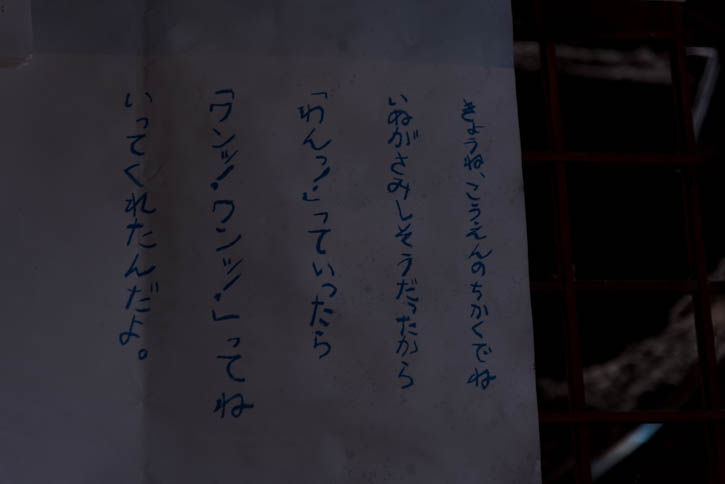 きょうね、こうえんのちかくでね
いぬがさみしそうだったから
「わんっ！」っていったら
「ワンッ！ワンッ！」ってね
いってくれたんだよ。